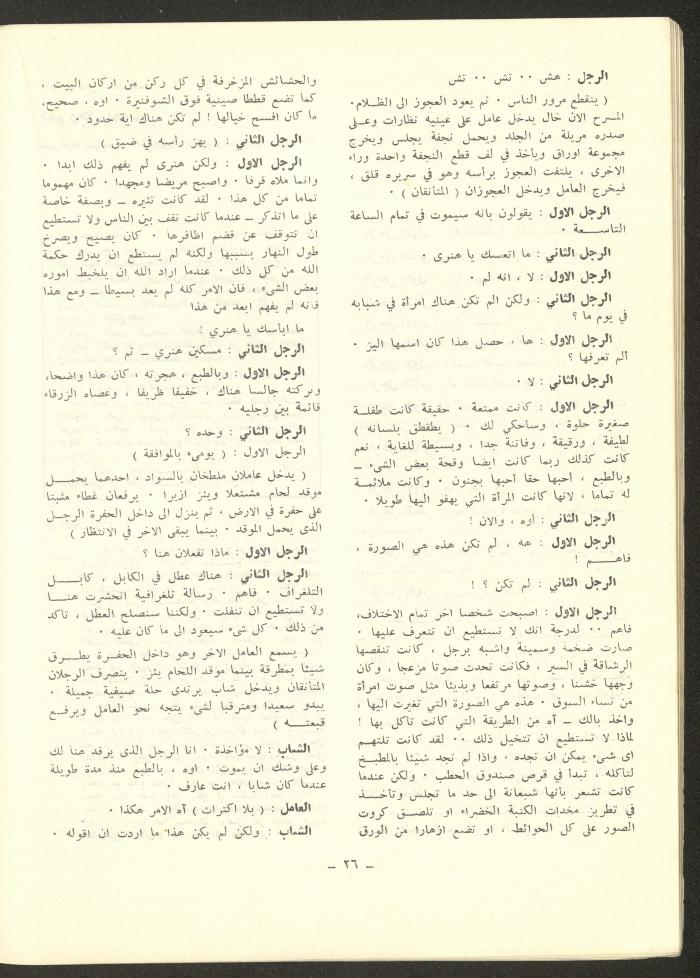 الرجل : هش ٠٠ تش ٠٠ تش
( ينقطع مرور الناس ٠ ثم يعود العجوز الى الظـلام٠
المسرح الان خال يدخل عامل على عينيه نظارات وعـلى
صدره مريلة من الجلد ويحمل نجفة يجلس ويخرج
مجموعة اوراق ويأخذ في لف قطع النجفة واحدة وراء
الاخرى ، يلتفت العجوز برأسه وهو في سريره قلق ،
فيخرج العامل ويدخل العجوزان ( المتأنقان ) ٠
الرجل الاول : يقولون بانه سيموت في تمام الساعة
التاســـعة ٠
الرجل الثاني : ما اتعسك يا هنرى ٠
الرجل الاول : لا ، انه لم ٠
الرجل الثاني : ولكن الم تكن هناك امرأة في شبابه
في يوم ما ؟
الرجل الاول : ها ، حصل هذا كان اسمها اليز ٠
ألم تعرفها ؟
الرجل الثاني : لا ٠
الرجل الاول : كانت ممتعة ٠ حقيقة كانت طفلـة
صغيرة حلوة ، وسأحكي لك ٠ ( يطقطق بلسانه )
لطيفة ، ورقيقة ، وفاتنة جدا ، وبسيطة للغاية ، نعم
كانت كذلك ربما كانت ايضا وقحة بعض الشىء ــ
وبالطبع ، أحبها حقا أحبها بجنون ٠ وكانت ملائمـة
له تماما ، لانها كانت المرأة التي يهفو اليها طويلا ٠
الرجل الثاني : أوه ، والان !
الرجل الاول : هه ، لم تكن هذه هي الصورة ،
فاهـــــم !
الرجل الثاني : لم تكن ؟ !
الرجل الاول : اصبحت شخصا اخر تمام الاختلاف،
فاهم ٠٠ لدرجة انك لا تستطيع ان تتعرف عليها ٠
صارت ضخمة وسمينة واشبه برجل ، كانت تنقصها
الرشاقة في السير ، فكانت تحدث صوتا مزعجا ، وكان
وجهها خشنا ، وصوتها مرتفعا وبذيئا مثل صوت امرأة
من نساء السوق ٠ هذه هي الصورة التي تغيرت اليها ،
واخذ بالك ــ آه من الطريقة التي كانت تأكل بها !
لماذا لا تستطيع ان تتخيل ذلك ٠٠ لقد كانت تلتهـم
اى شىء يمكن ان تجده ، واذا لم تجد شيئا بالمطبـخ
لتأكله ، تبدأ في قرص صندوق الحطب ٠ ولكن عندما
كانت تشعر بأنها شبعانة الى حد ما تجلس وتأخــذ
في تطريز مخدات الكنبة الخضراء او تلصــق كروت
الصور على كل الحوائط ، او تضع ازهارا من الورق
والحشائش المزخرفة في كل ركن من اركان البيت ،
كما تضع قططا صينية فوق الشوفنيرة ٠ اوه ، صحيح،
ما كان افسح خيالها ! لم تكن هناك اية حدود ٠
الرجل الثاني : ( يهز رأسه في ضيق )
الرجل الاول : ولكن هنرى لم يفهم ذلك ابدا ٠
وانما ملاه قرفا ٠ واصبح مريضا ومجهدا ٠ كان مهموما
تماما من كل هذا ٠ لقد كانت تثيره ــ وبصفة خاصة
على ما اتذكر ــ عندما كانت تقف بين الناس ولا تستطيع
ان تتوقف عن قضم اظافرها ٠ كان يصيح ويصرخ
طول النهار بسببها ولكنه لم يستطع ان يدرك حكمة
الله من كل ذلك ٠ عندما اراد الله ان يلخبط اموره
بعض الشىء ، فان الامر كله لم يعد بسيطا ــ ومع هذا
فانه لم يفهم ابعد من هذا
ما ابأسك يا هنري !
الرجل الثاني : مسكين هنري ــ ثم ؟
الرجل الاول : وبالطبع ، هجرته ، كان هذا واضحا،
وتركته جالسا هناك ، خفيفا ظريفا ، وعصاه الزرقاء
قائمة بين رجليه ٠
الرجل الثاني : وحده ؟
الرجل الاول : ( يومىء بالموافقة )
( يدخل عاملان ملطخان بالسواد ، احدهما يحمــل
موقد لحام مشتعلا ويئز ازيرا ٠ يرفعان غطاء مثبتا
على حفرة في الارض ، ثم ينزل الى داخل الحفرة الرجـل
الذى يحمل الموقد ٠ بينما يبقى الاخر في الانتظار )
الرجل الاول : ماذا تفعلان هنا ؟
الرجل الثاني : هناك عطل في الكابل ، كابــــل
التلغراف ٠ فاهم ٠ رسالة تلغرافية انحشرت هنـــا
ولا تستطيع ان تنفلت ٠ ولكننا سنصلح العطل ، تأكد
من ذلك ٠ كل شىء سيعود الى ما كان عليه ٠
( يسمع العامل الاخر وهو داخل الحفـرة يطــرق
شيئا بمطرقة بينما موقد اللحام يئز ٠ ينصرف الرجلان
المتأنقان ويدخل شاب يرتدى حلة صيفية جميلة ٠
يبدو سعيدا ومترقبا لشىء يتجه نحو العامل ويرفـع
قبعتـــه )
الشاب : لا مؤاخذة ٠ انا الرجل الذى يرقد هنا لك
وعلى وشك ان يموت ٠ اوه ، بالطبع منذ مدة طويلة
عندما كان شابا ، انت عارف ٠
العامل : ( بلا اكتراث ) آه الامر هكذا ٠
الشاب : ولكن لم يكن هذا ما اردت ان اقوله ٠
ــ ٢٦ ــ